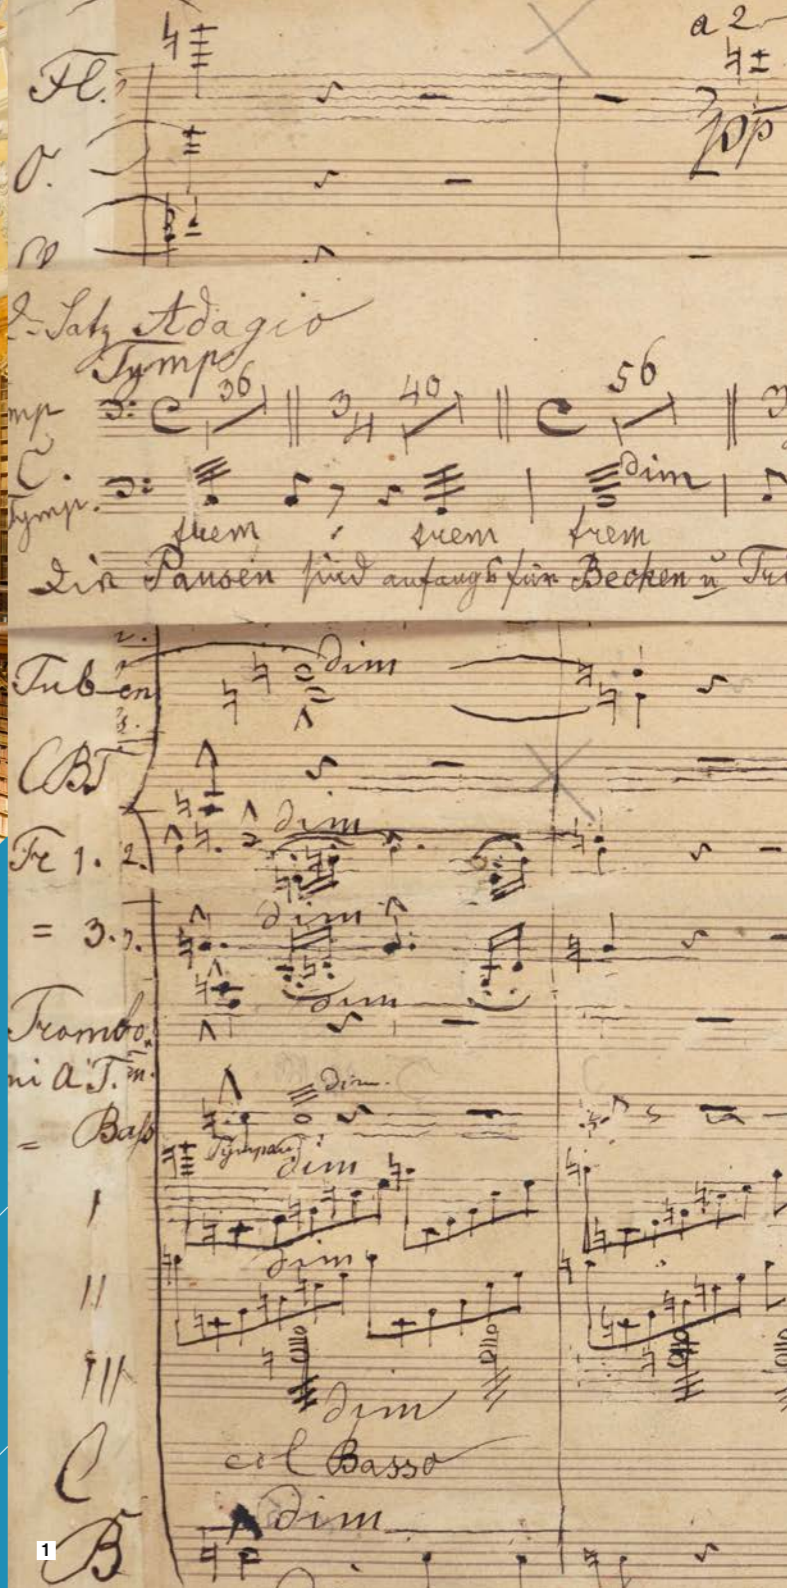 a 2
Fl.
pp
O.
2. Satz Adagio
Tymp
36 3/4 40 56
C.
Tymp. dim
trem trem trem
Die Pausen sind anfangs für Becken u
Tuben dim
CBT
dim
Fr 1. 2.
dim
= 3.
dim
Trombo
ni A. T.
dim.
= Bass
Tympani
dim
I
dim
II
III
dim
C
col Basso
dim
B
1